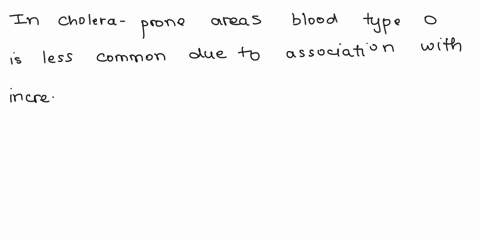 In cholera- prone areas blood type O
is less common due to association with
incre.